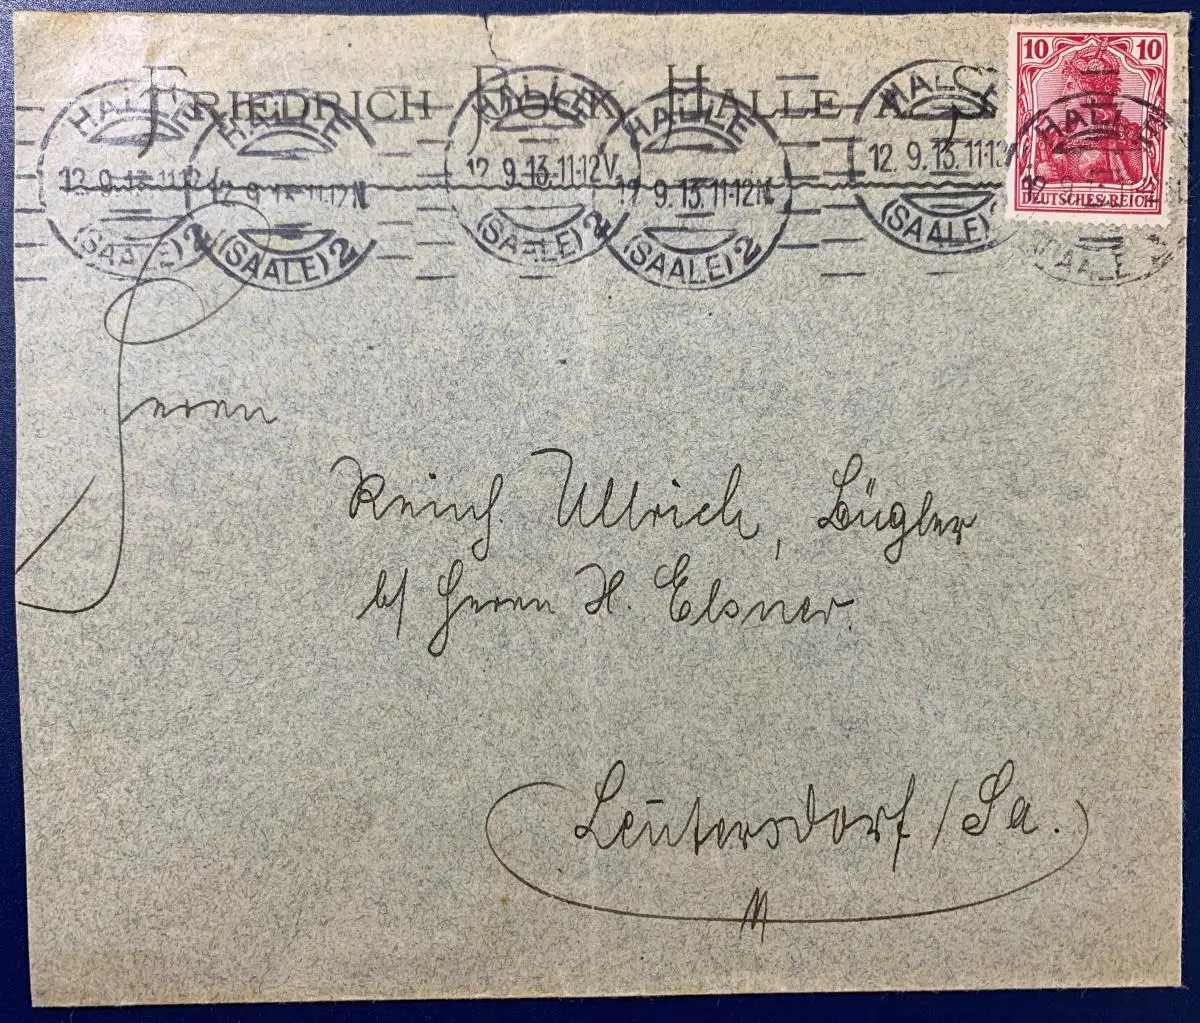 FRIEDRICH POCK HALLE A. S.
HALLE HALLE HALLE HALLE HALLE HALLE
12.9.13.11-12V. 12.9.13.11-12N 12.9.13.11-12V. 12.9.13.11-12N 12.9.13.
(SAALE) 2 (SAALE) 2 (SAALE) 2 (SAALE) 2 (SAALE) SAALE
10 10
DEUTSCHES REICH
Herrn
Reinh. Ullrich, Bügler
b/ Herrn H. Elsner.
Leutersdorf / Sa.